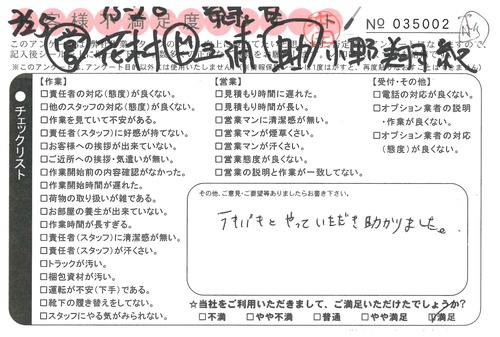 様 不 満 足 度
No 035002
【作業】
□責任者の対応(態度)が良くない。
□他のスタッフの対応(態度)が良くない。
□作業を見ていて不安がある。
□責任者(スタッフ)に好感が持てない。
□お客様への挨拶が出来ていない。
□ご近所への挨拶・気遣いが無い。
□作業開始前の内容確認がなかった。
□作業開始時間が遅れた。
□荷物の取り扱いが雑である。
□お部屋の養生が出来ていない。
□作業時間が長すぎる。
□責任者(スタッフ)に清潔感が無い。
□責任者(スタッフ)が汗くさい。
□トラックが汚い。
□梱包資材が汚い。
□運転が不安(下手)である。
□靴下の履き替えをしてない。
□スタッフにやる気がみられない。
【営業】
□見積もり時間に遅れた。
□見積もり時間が長い。
□営業マンに清潔感が無い。
□営業マンが煙草くさい。
□営業マンが汗くさい。
□営業態度が良くない。
□営業の説明と作業が一致してない。
【受付・その他】
□電話の対応が良くない。
□オプション業者の説明
・作業が良くない。
□オプション業者の対応
(態度)が良くない。
●チェックリスト
その他、ご意見・ご要望等ありましたらお書き下さい。
テキパキとやっていただき助かりました。
☆当社をご利用いただきまして、ご満足いただけたでしょうか?
□不満 □やや不満 □普通 □やや満足 満足